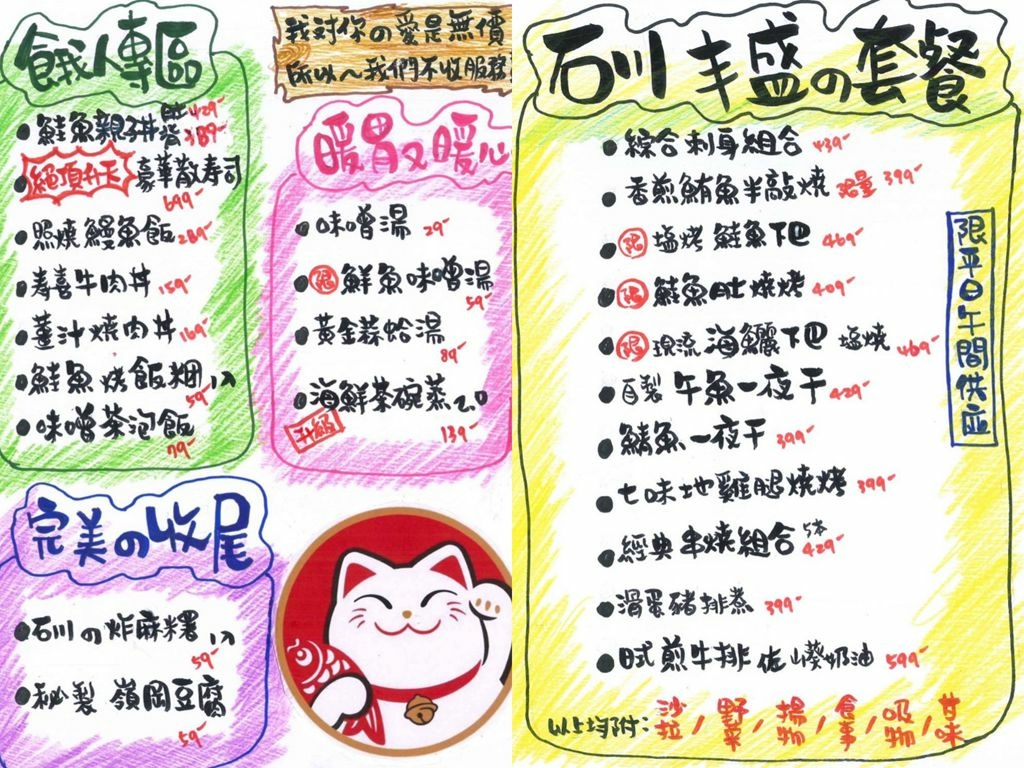 餓人專區
鮭魚親子丼 429-
389-
絕頂升天 豪華散寿司
699-
照燒鰻魚飯 289-
寿喜牛肉丼 159-
薑汁燒肉丼 169-
鮭魚烤飯糰 1入
59-
味噌茶泡飯
79-
我对你の愛是無價
所以~我們不收服務
暖胃又暖心
味噌湯 29-
限 鮮魚味噌湯
59-
黃金蒜蛤湯
89-
海鮮茶碗蒸2.0
升級 139-
完美の收尾
石川の炸麻糬 1入
59-
秘製 嶺岡豆腐
59-
石川丰盛の套餐
綜合刺身組合 439-
香煎鮪魚半敲燒 限量 399-
限 塩烤鮭魚下巴 469-
限 鮭魚肚燒烤 409-
限 現流海鱺下巴 塩燒 469-
自製 午魚一夜干 429-
鯖魚一夜干 399-
七味地雞腿燒烤 399-
經典串燒組合 5本 429-
滑蛋豬排煮 399-
日式煎牛排佐山葵奶油 599-
限平日午間供应
以上均附: 沙拉/野菜/揚物/食事/吸物/甘味